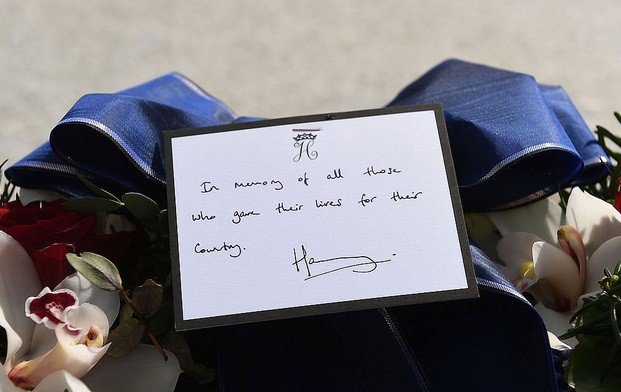 H
In memory of all those
who gave their lives for their
Country.
Harry.